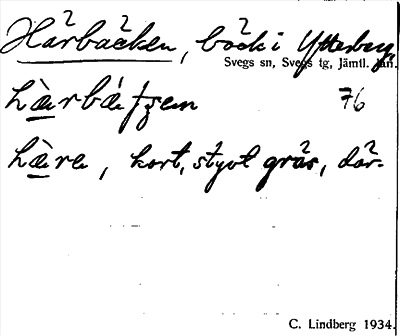 Härbäcken, bäck i Ytterberg,
Svegs sn, Svegs tg, Jämtl. län.
76
hære, kort, styvt gräs, där-
C. Lindberg 1934.